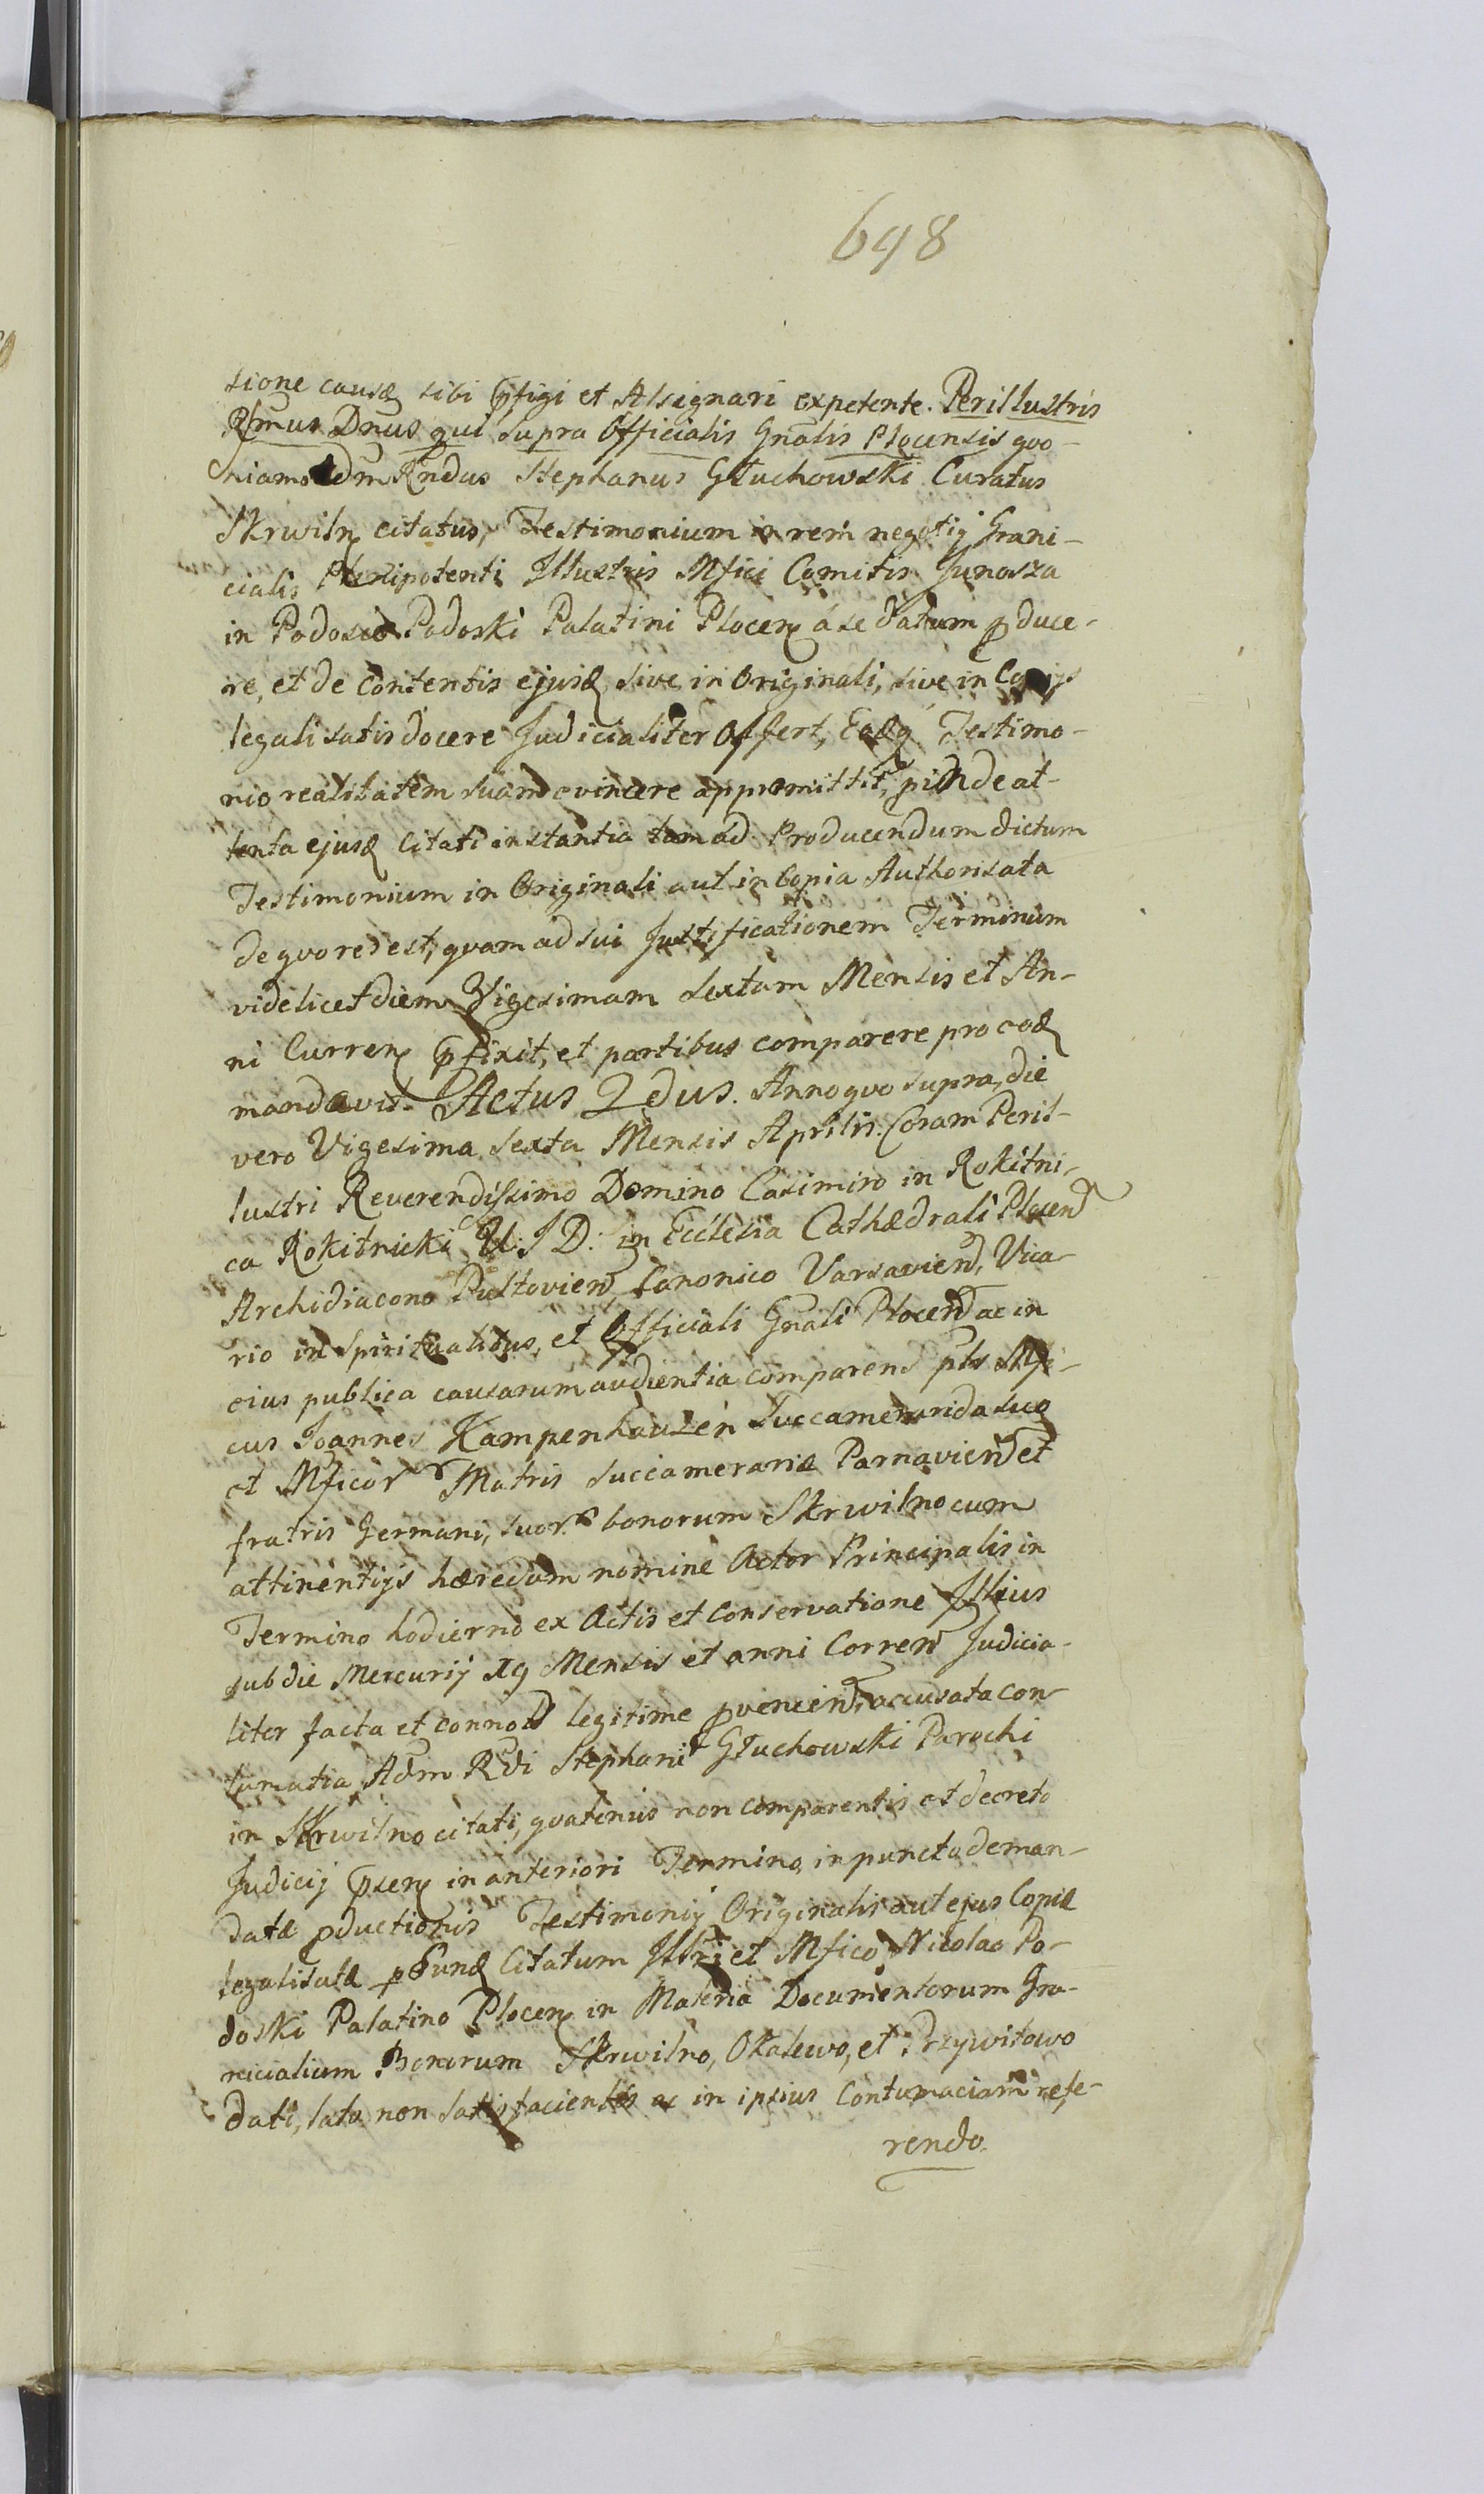 698
sione causæ sibi pfigi et Assignari expetente. Perillustris
Rsmus Dnus qui Supra Officialis Gnalis Plocensis quo-
niam Adm Rndus Stephanus Głuchowski Curatus
Skrwiln citatus, Testimonium in rem negotij Grani-
cialis Plenipotenti Illustris Mfici Comitis Junosza
in Podosie Podoski Palatini Plocen á se datum pduce-
re, et de Contentis ejusd sive in Originali, sive in Copijs
legalisatis docere Judicialiter Offert, Eodq Testimo-
nio realitatem suam evincere appromittit, pinde at-
tenta ejusd Citati instantia tam ad Producendum dictum
Testimonium in Originali aut in Copia Authorisata
de quo res est, quam ad sui Justificationem Terminum
videlicet diem Vigesimam sextam Mensis et An-
ni Curren pfixit, et partibus comparere pro eod
mandavit. Actus 2dus. Anno quo supra, die
vero Vigesima sexta Mensis Aprilis. Coram Peril-
lustri Reverendissimo Domino Casimiro in Rokitni-
ca Rokitnicki U. J. D. in Ecclesia Cathædrali Plocen
Archidiacono Pultovien, Canonico Varsavien, Vica-
rio in Spiritualibus, et Officiali Gnali Plocen ac in
eius publica causarum audientia comparens pls Mfi-
cus Joannes Kampenhauzen Succamerarida suo
et Mficor Matris Succamerariæ Parnavien et
fratris Germani, suor bonorum Skrwilno cum
attinentijs hæredum nomine Actor Principalis in
Termino hodierno ex Actis et Conservatione Illius
sub die Mercurij 19 Mensis et anni Corren Judicia-
liter facta et connotat legitime pvenien, accusata con-
tumatia Adm Rdi Stephani Głuchowski Parochi
in Skrwilno citati, quatenus non comparentis et decreto
Judicij psen in anteriori Termino in puncto deman-
datæ pductionis Testimonij Originalis aut ejus Copiæ
legalisatæ p eund Citatum Illri et Mfico Nicolao Po-
doski Palatino Plocen in Materia Documentorum Gra-
nicialium Bonorum Skrwilno, Okalewo, et Przywitowo
dati, lato non satisfacientis ac in ipsius Contumaciam refe-
rendo.